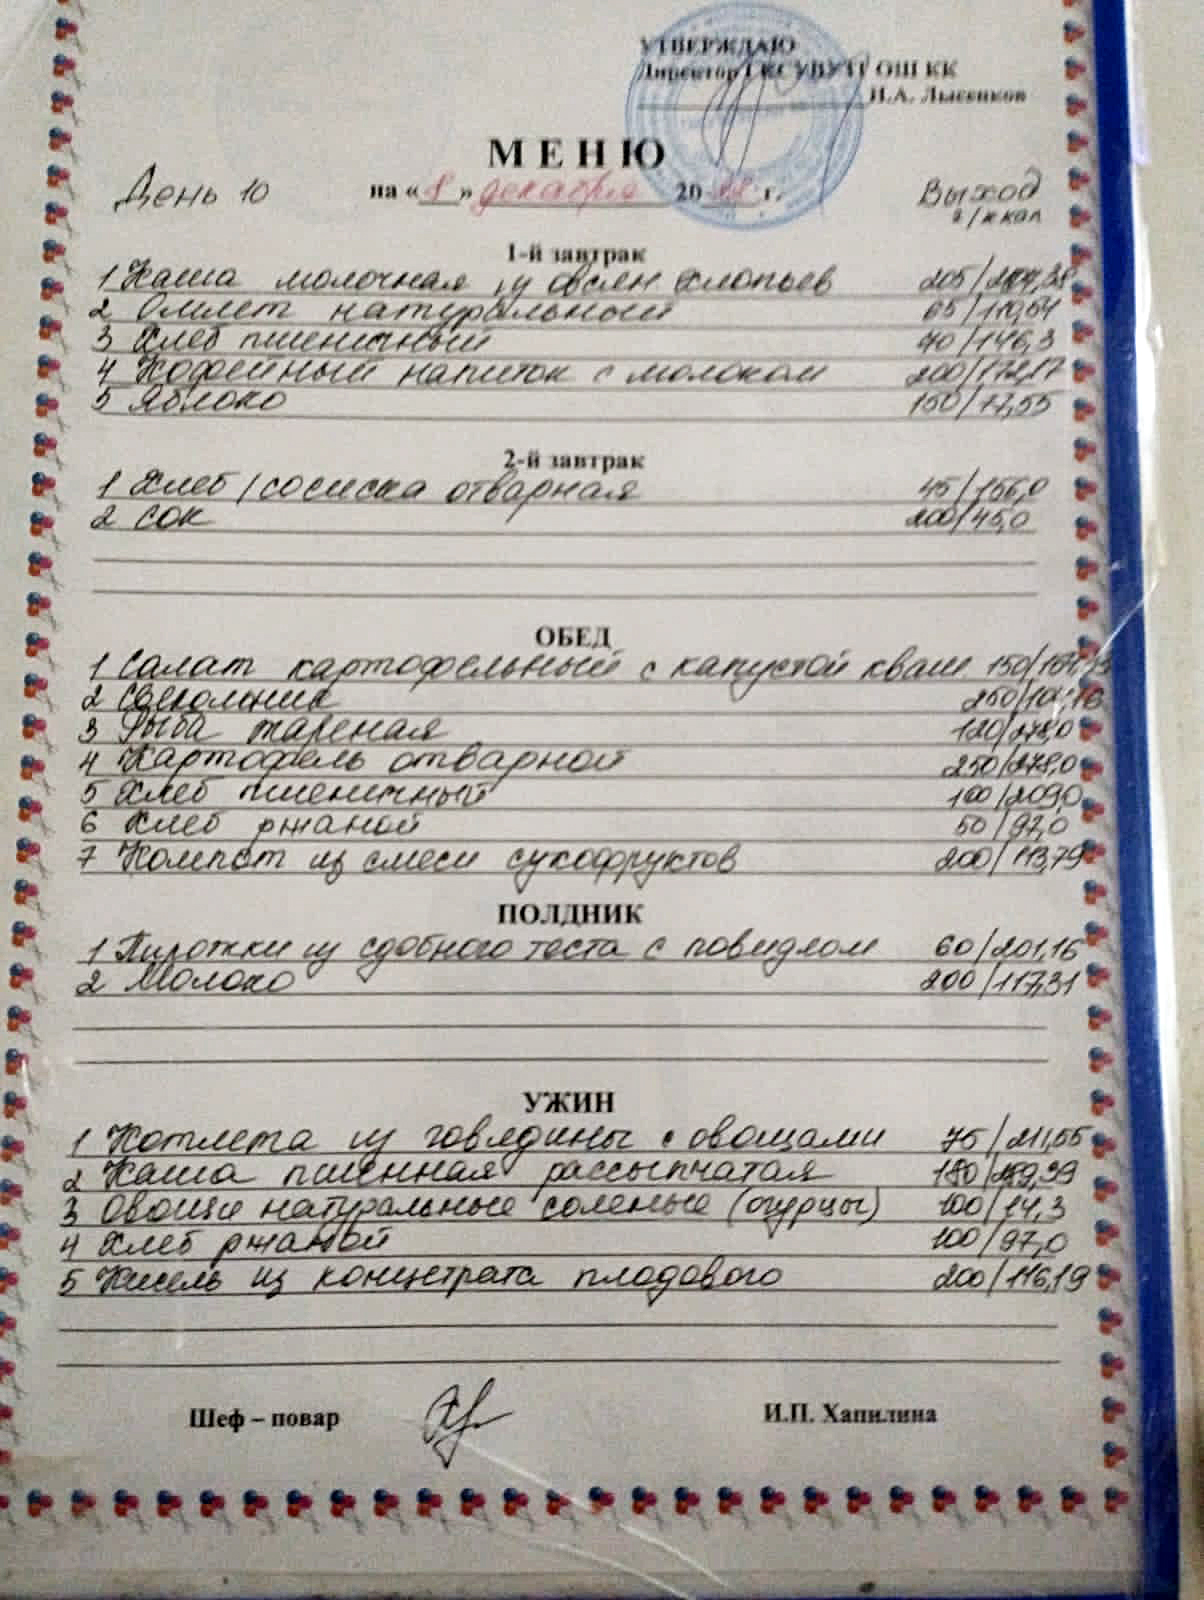 УТВЕРЖДАЮ
Директор ГКСУВУТГ ОШ КК
И.А. Лысенков
МЕНЮ
День 10 на « 8 » декабря 20 г. Выход
г/ккал
1-й завтрак
1 Каша молочная из овсян хлопьев 205/
2 Омлет натуральный 65/170,64
3 Хлеб пшеничный 70/146,3
4 Кофейный напиток с молоком 200/172,17
5 Яблоко 150/77,55
2-й завтрак
1 Хлеб/сосиска отварная 45/156,0
2 Сок 200/45,0
ОБЕД
1 Салат картофельный с капустой кваш. 150/
2 Свекольник 250/
3 Рыба жареная 120/278,0
4 Картофель отварной 250/278,0
5 Хлеб пшеничный 100/209,0
6 Хлеб ржаной 50/97,0
7 Компот из смеси сухофруктов 200/113,79
ПОЛДНИК
1 Пирожки из сдобного теста с повидлом 60/201,16
2 Молоко 200/117,31
УЖИН
1 Котлета из говядины с овощами 75/211,55
2 Каша пшенная рассыпчатая 180/
3 Овощи натуральные соленые (огурцы) 100/14,3
4 Хлеб ржаной 100/97,0
5 Кисель из концетрата плодового 200/116,19
Шеф – повар И.П. Хапилина